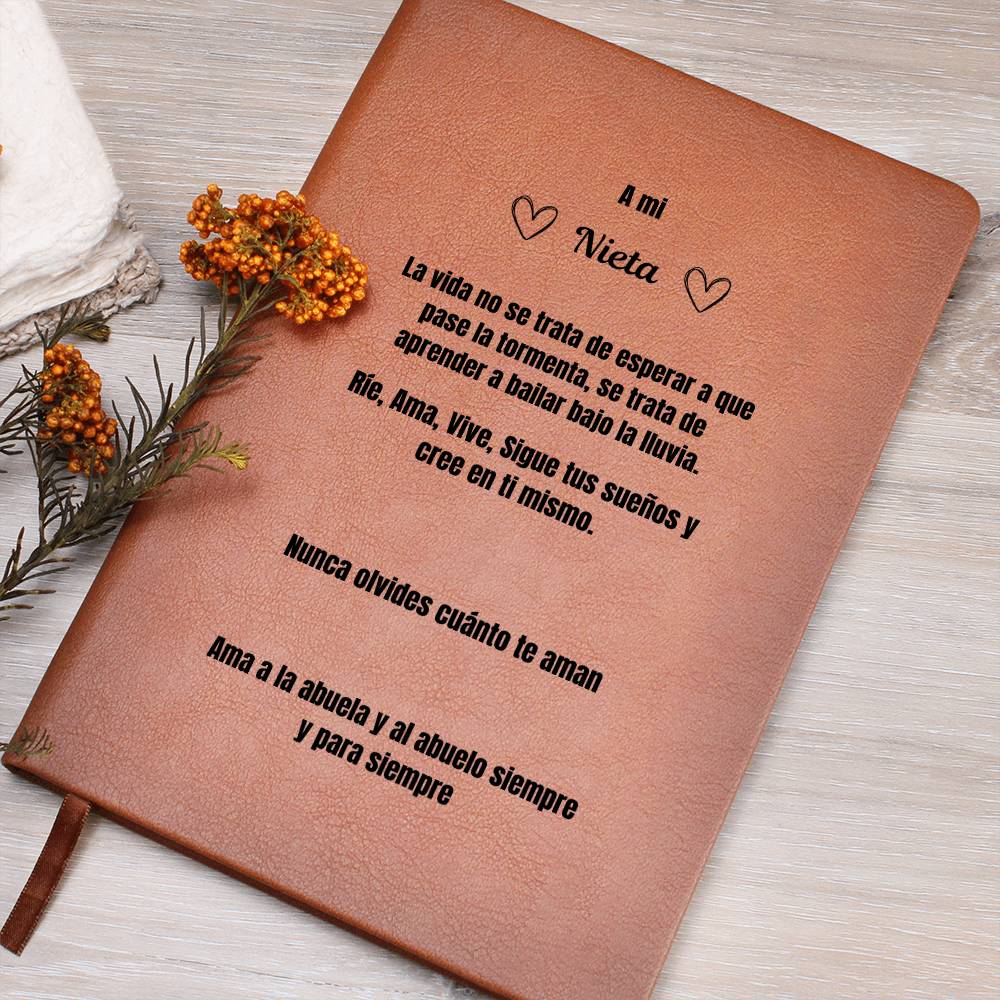 A mi
Nieta
La vida no se trata de esperar a que
pase la tormenta, se trata de
aprender a bailar bajo la lluvia.
Ríe, Ama, Vive, Sigue tus sueños y
cree en ti mismo.
Nunca olvides cuánto te aman
Ama a la abuela y al abuelo siempre
y para siempre